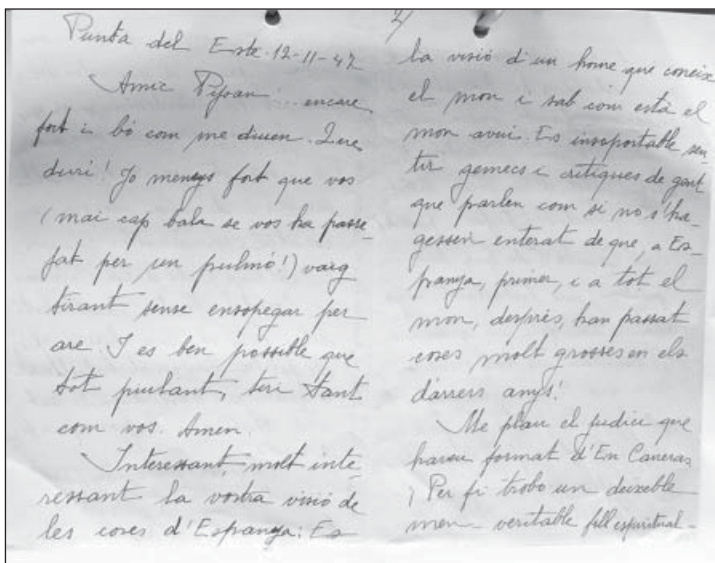 Punta del Este-12-11-42
Amic Pijoan encare
fort i bó com me diuen. Que
duri! Jo menys fort que vos
(mai cap bala se vos ha passe-
jat per un pulmó!) vaig
tirant sense ensopegar per
are. I es ben possible que
tot piulant, tiri tant
com vos. Amen.
Interessant, molt inte-
ressant la vostra visió de
les coses d'Espanya: Es
2/
la visió d'un home que coneix
el mon i sab com està el
mon avui. Es insoportable sen-
tir gemecs i critiques de gent
que parlen com si no s'ha-
gessen enterat de que, a Es-
panya, primer, i a tot el
mon, després, han passat
coses molt grosses en els
darrers anys!
Me plau el judici que
haveu format d'En Carreras
¡Per fi trobo un deixeble
meu - veritable fill espiritual -